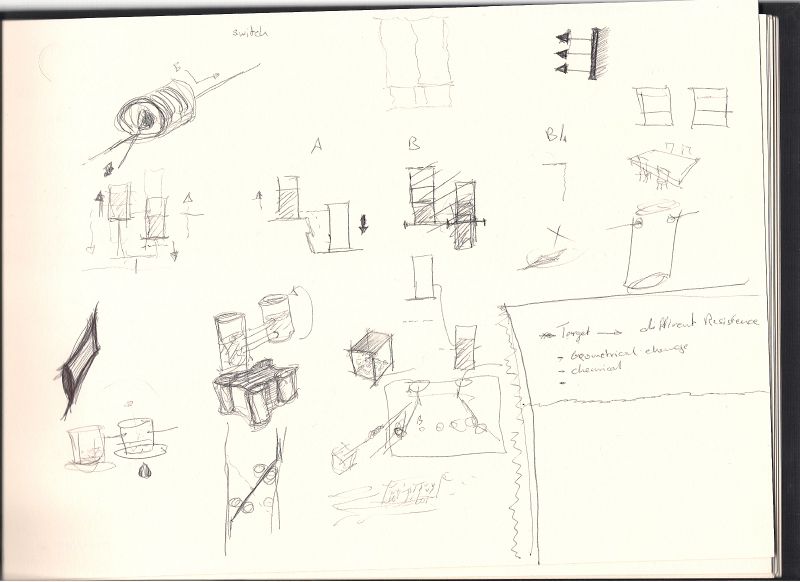 switch
A
B
B/2
Target → different Resistence
→ Geometrical change
→ chemical